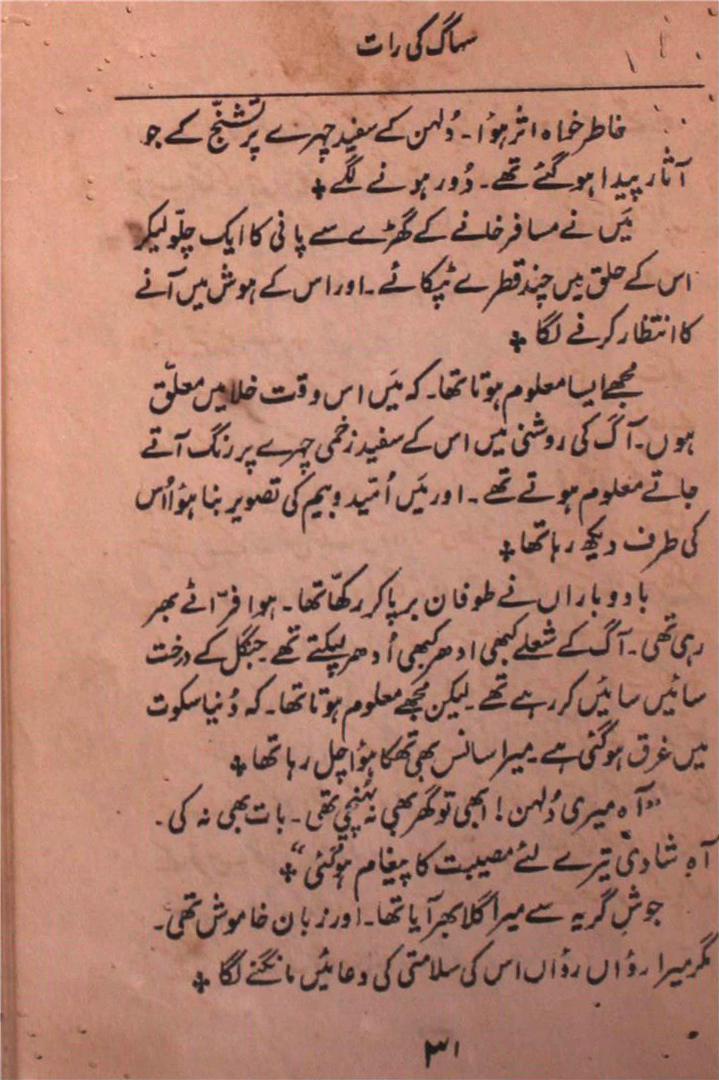 سہاگ کی رات
خاطر خواہ اثر ہؤا۔ دُلہن کے سفید چہرے پر تشنّج کے جو
آثار پیدا ہو گئے تھے۔ دُور ہونے لگے ٭
مَیں نے مسافر خانے کے گھڑے سے پانی کا ایک چلّو لیکر
اس کے حلق میں چند قطرے ٹپکائے۔ اور اس کے ہوش میں آنے
کا انتظار کرنے لگا ٭
مجھے ایسا معلوم ہوتا تھا۔ کہ مَیں اس وقت خلا میں معلّق
ہوں۔ آگ کی روشنی میں اس کے سفید زخمی چہرے پر رنگ آتے
جاتے معلوم ہوتے تھے۔ اور مَیں اُمّید و بیم کی تصویر بنا ہؤا اُس
کی طرف دیکھ رہا تھا ٭
باد و باراں نے طوفان برپا کر رکھّا تھا۔ ہوا فرّاٹے بھر
رہی تھی۔ آگ کے شعلے کبھی ادھر کبھی اُدھر لپکتے تھے۔ جنگل کے درخت
سائیں سائیں کر رہے تھے۔ لیکن مجھے معلوم ہوتا تھا۔ کہ دُنیا سکوت
میں غرق ہو گئی ہے۔ میرا سانس بھی تھکا ہؤا چل رہا تھا ٭
”آہ میری دُلہن! ابھی تو گھر بھی نہ پہنچی تھی۔ بات بھی نہ کی۔
آہ شادی تیرے لئے مصیبت کا پیغام ہو گئی“ ٭
جوشِ گریہ سے میرا گلا بھر آیا تھا۔ اور زبان خاموش تھی۔
مگر میرا رؤاں رؤاں اس کی سلامتی کی دعائیں مانگنے لگا ٭
۳۱